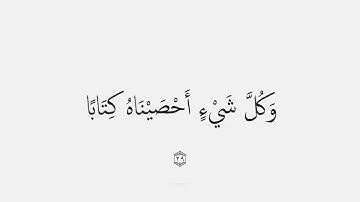 وَكُلَّ شَيْءٍ أَحْصَيْنَاهُ كِتَابًا
٢٩